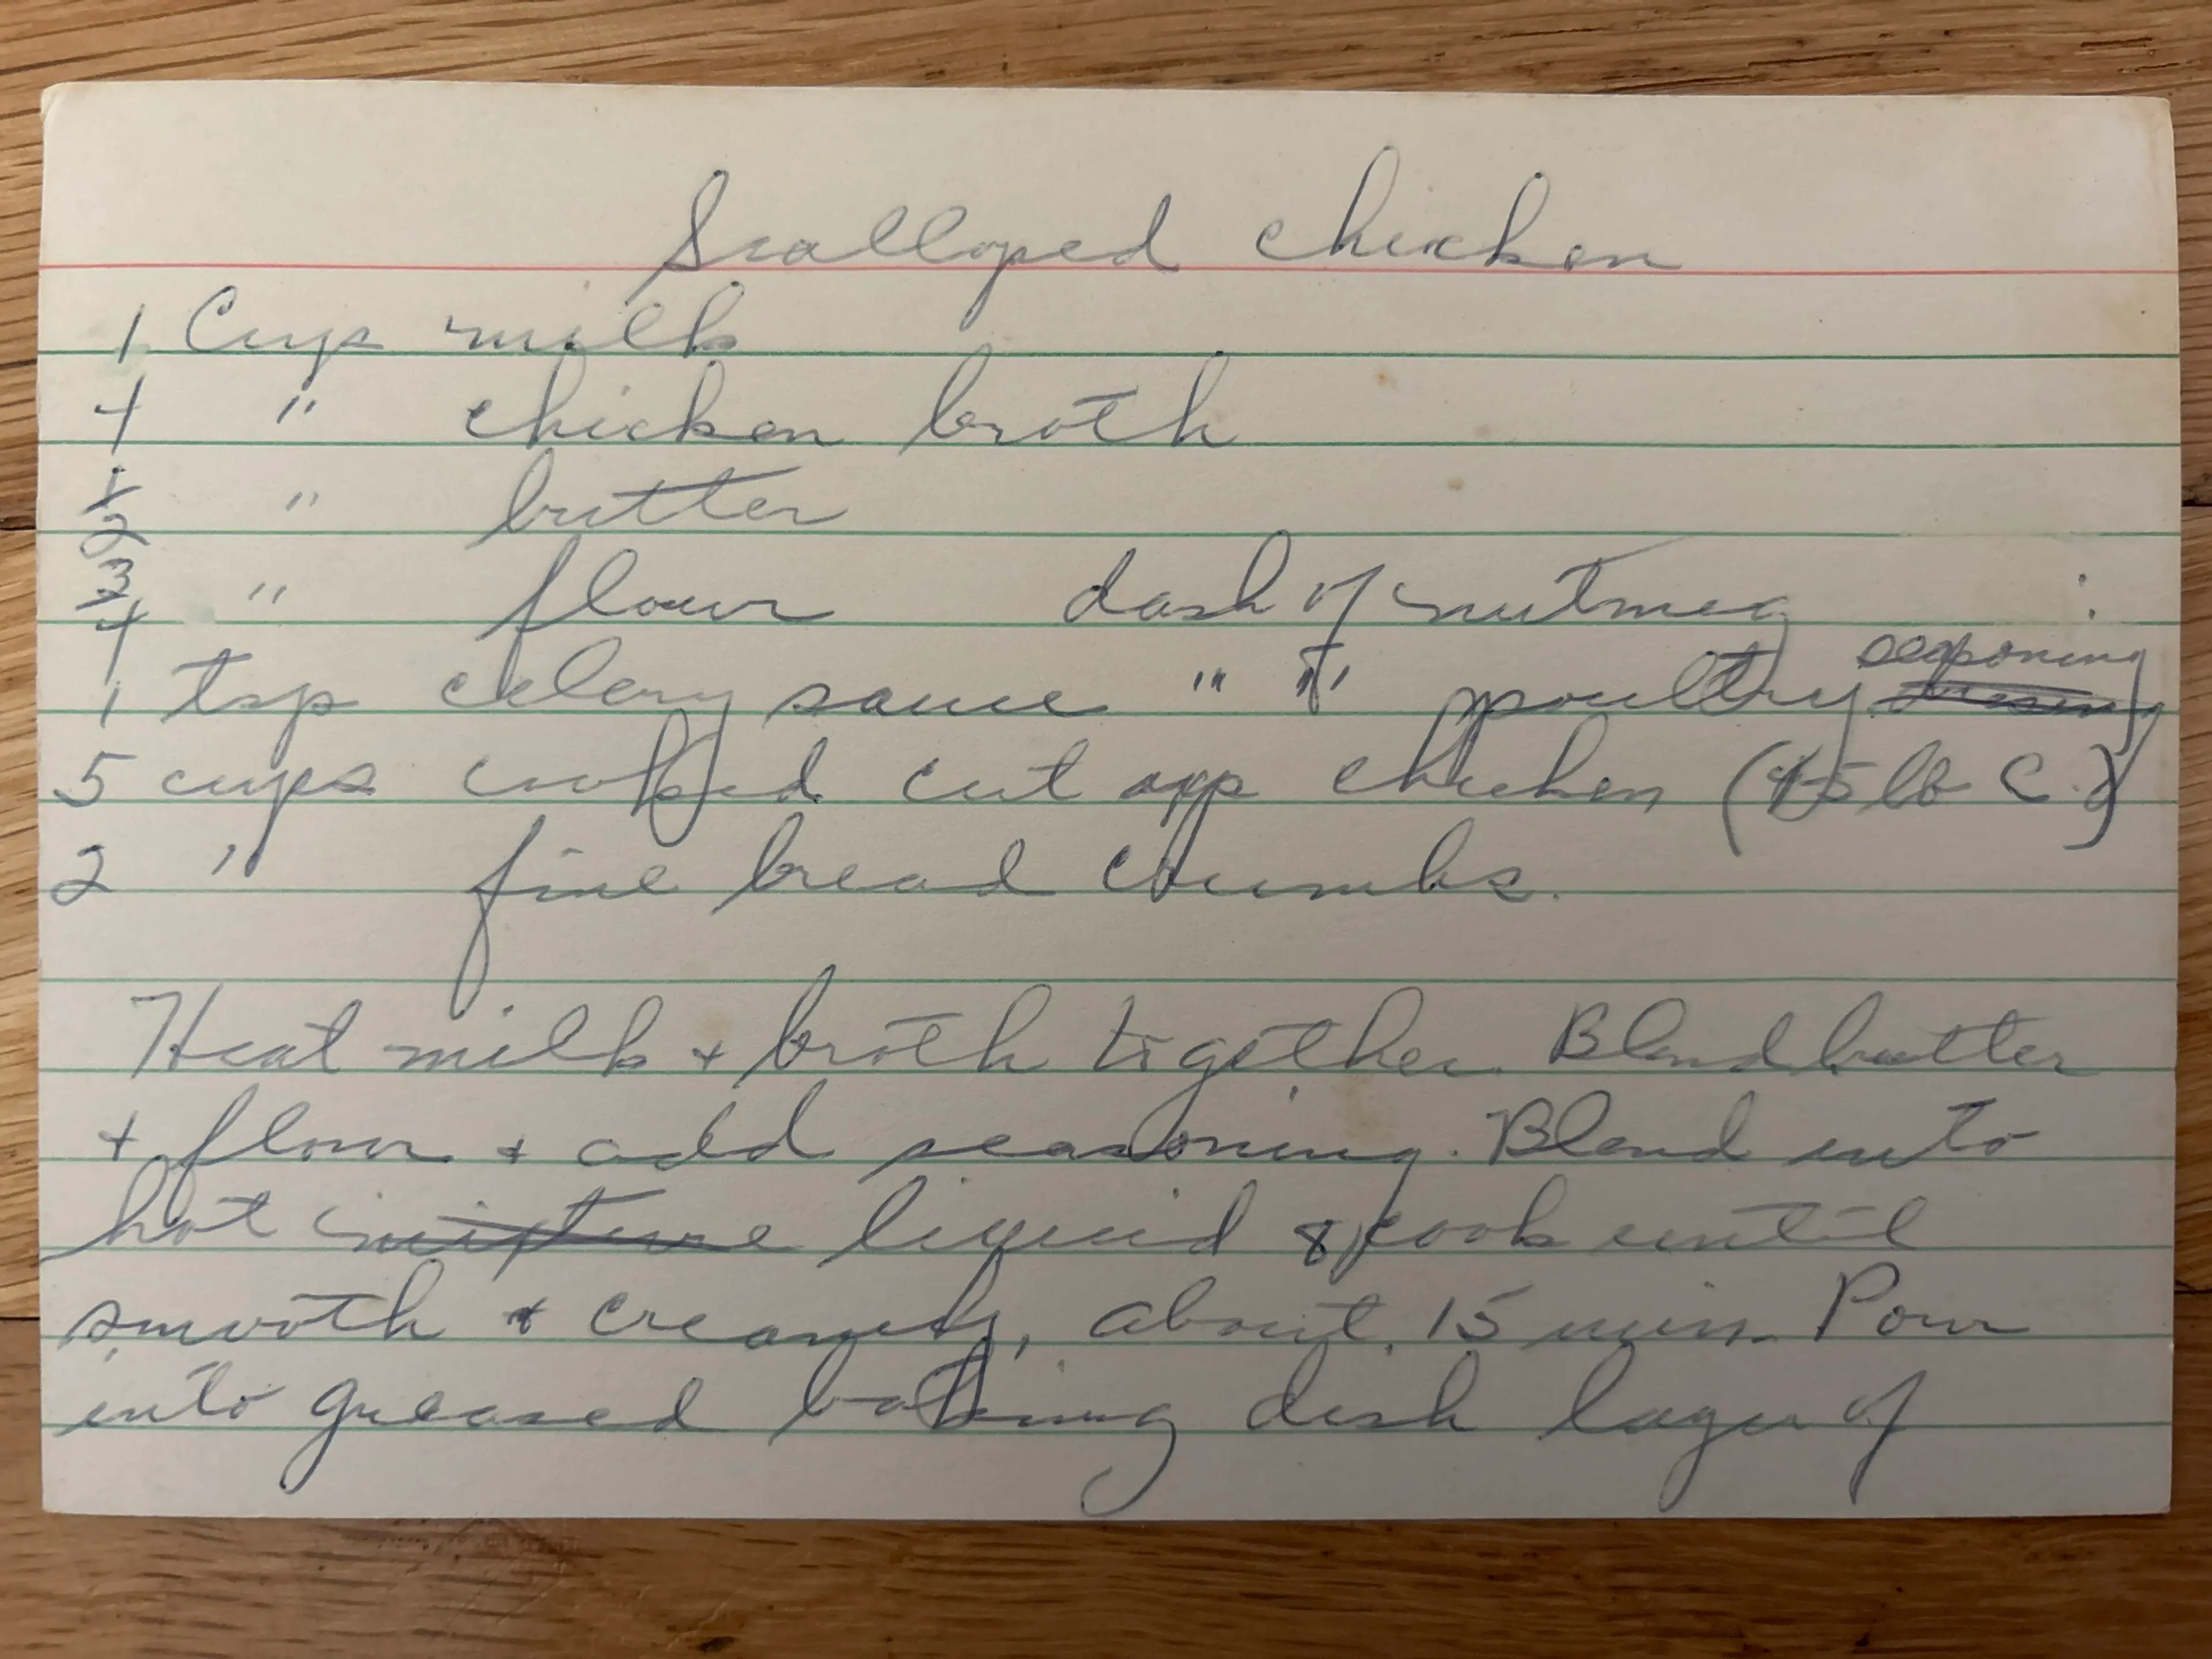 Scalloped chicken
1 Cups milk
4 " chicken broth
1/2 " butter
3/4 " flour dash of nutmeg
1 tsp celery sauce " " poultry seasoning
5 cups cooked cut up chicken (5 lb C.)
2 " fine bread crumbs.
Heat milk + broth together. Blend butter
+ flour + add seasoning. Blend into
hot mixture liquid & cook until
smooth + creamy, about 15 min. Pour
into greased baking dish layer of